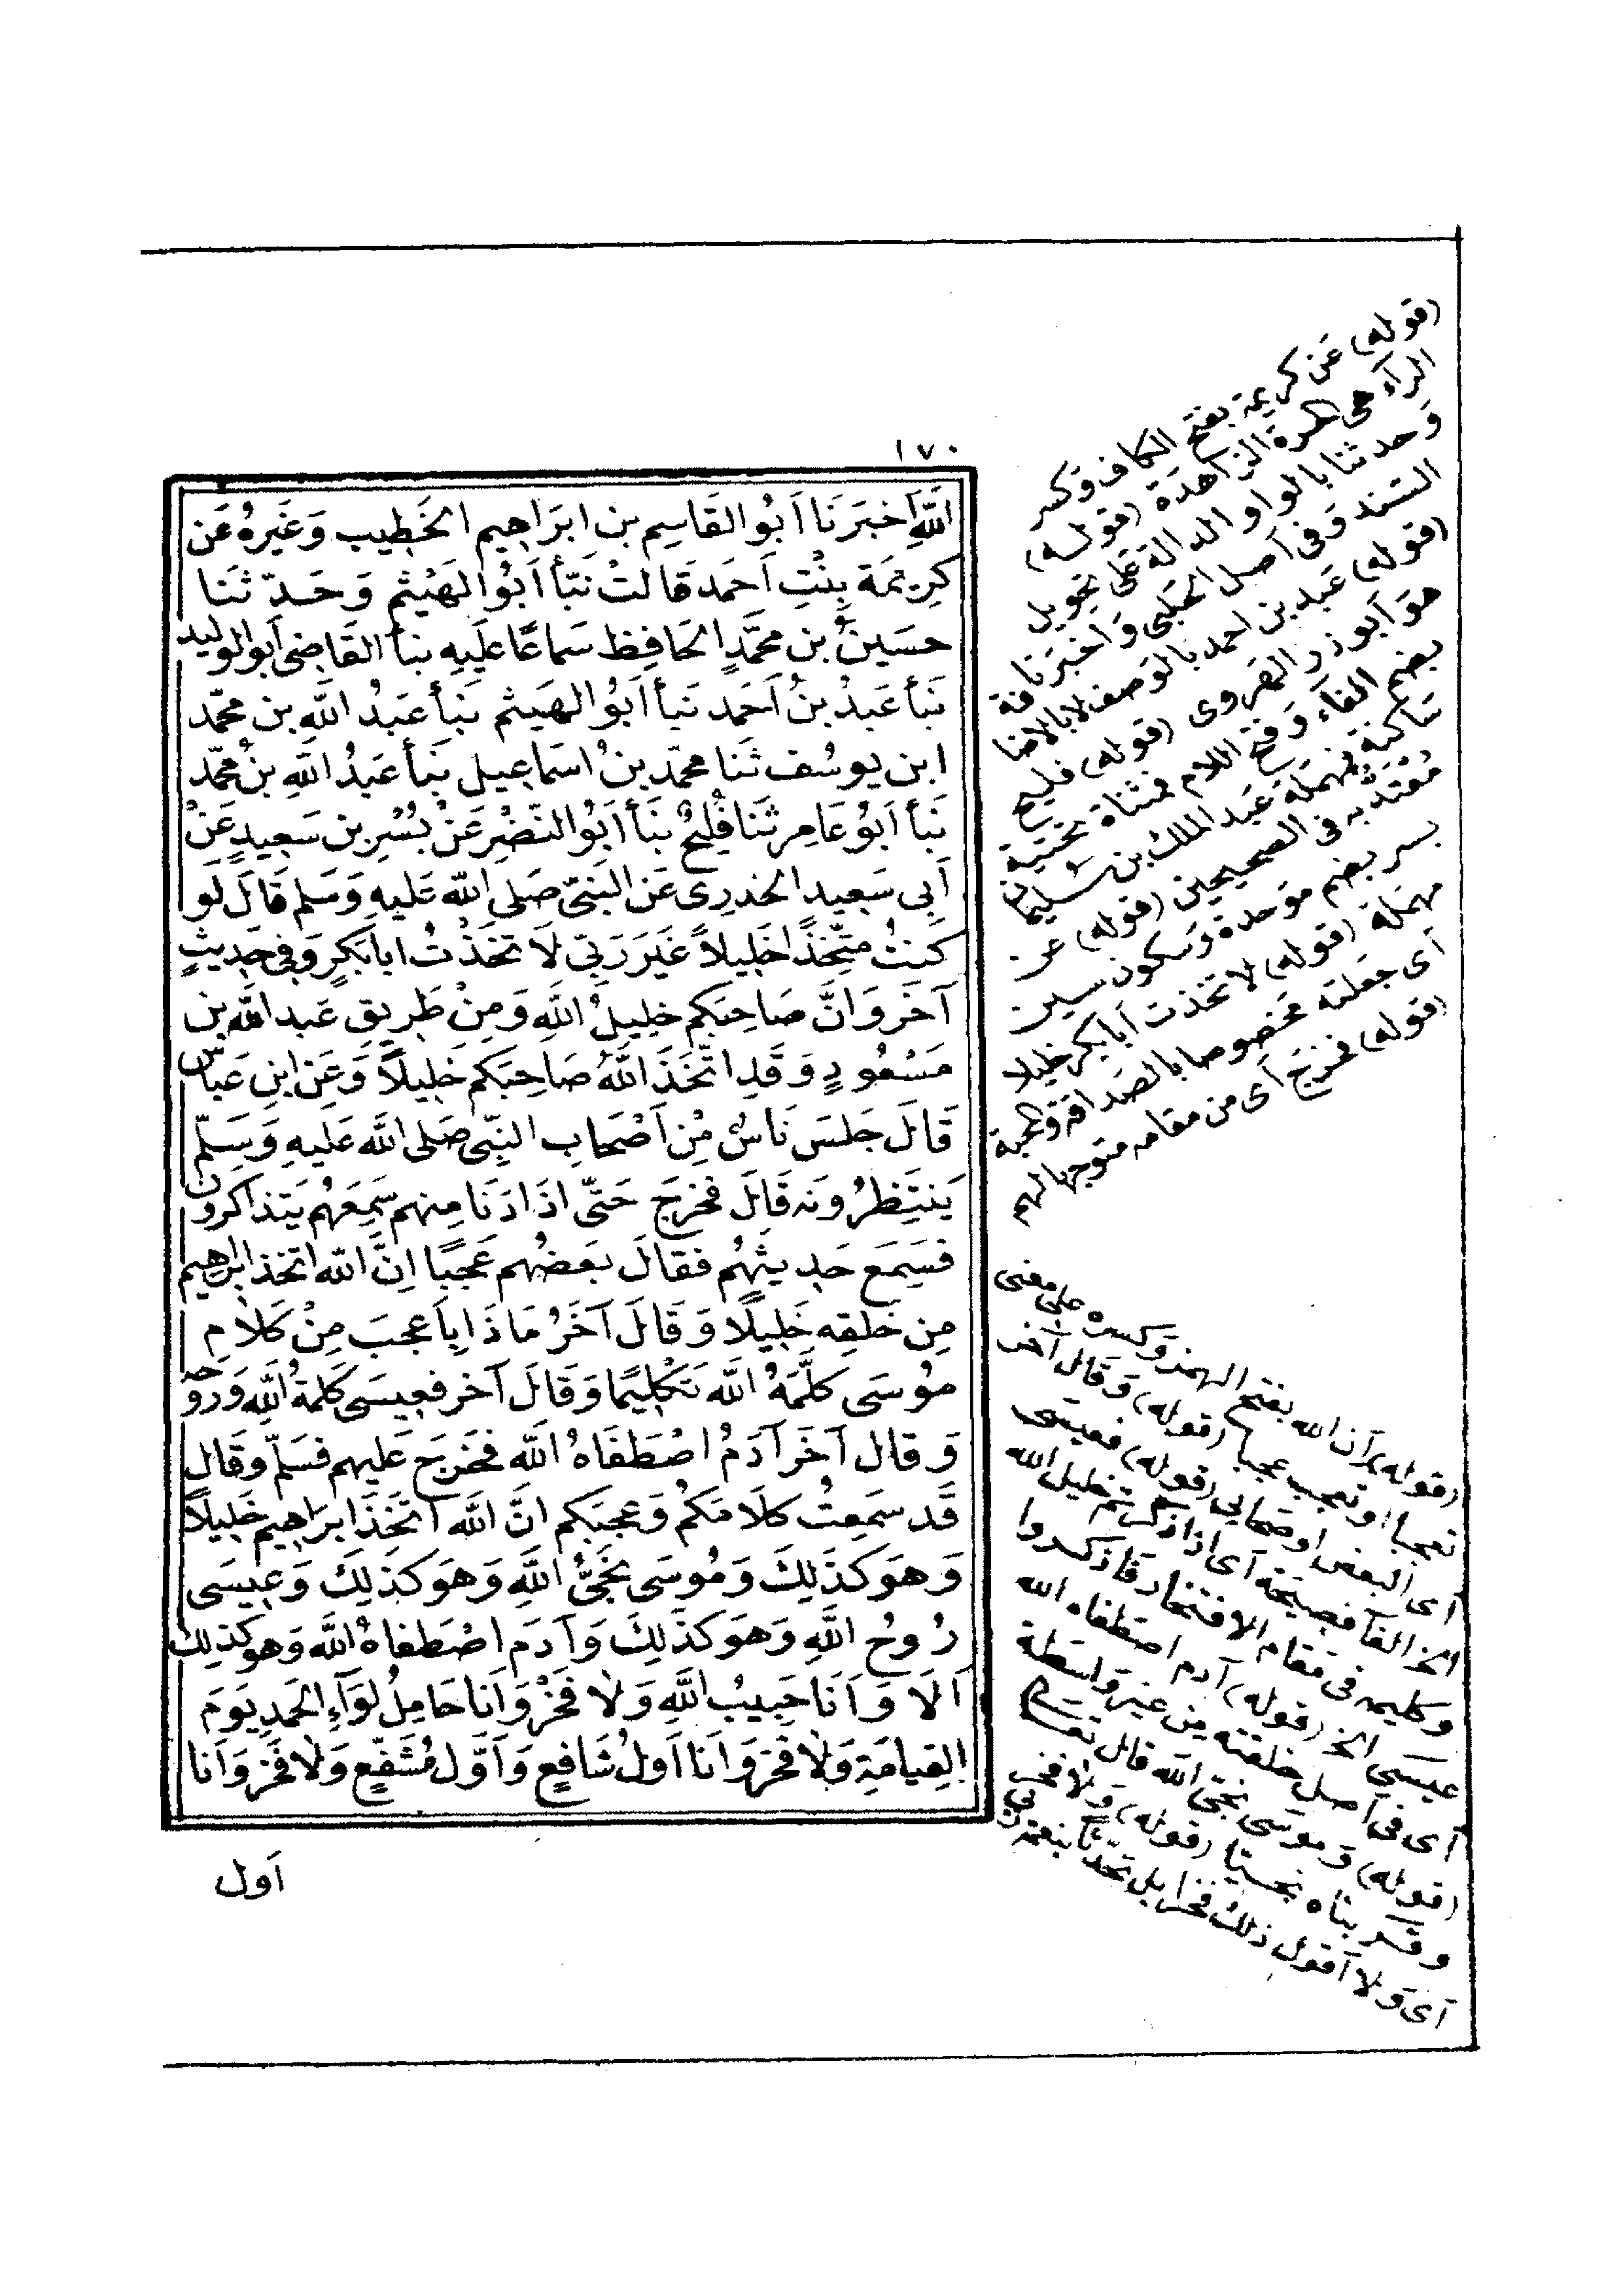 ١٧٠
اللَّهِ اَخبَرَنَا اَبُو القَاسِم بن ابرَاهِيم الخَطِيب وَغَيرهُ عَن
كرِيمَة بِنْتِ اَحمَد قَالتْ نَبّأ اَبُو الهَيْثم وَحَدّثنَا
حسَينُ بن محمَّدٍ الحَافِظ سَماعًا عَلَيهِ نبأ القَاضِى اَبو الوليد
نَبأ عَبدُ بنُ اَحمَد نَبأ اَبُو الهَيثم نَبأ عَبدُ اللَّهِ بن محمّد
ابن يوسُف ثنَا محمّد بنُ اسمَاعِيل نَبأ عَبدُ اللَّهِ بنُ محمّد
نَبأ اَبوُ عَامِر ثنَا فُلَيحٌ نبَأ اَبوُ النَّضْرِ عَنْ بُسْرِ بن سَعِيدٍ عَنْ
اَبِى سَعِيد الخدرِى عَن النَبيّ صَلى اللَّه عَليهِ وَسَلم قَالَ لَو
كنتُ متّخِذًا خَلِيلاً غَيَر رَبّى لَا تخَذْتُ ابا بَكرٍ وَفِى حَدِيثٍ
آخَر وَانَّ صَاحِبَكم خلِيلُ اللَّهِ وَمِنْ طَرِيقِ عَبد اللَّه بن
مَسْعُودٍ وَقَدِ اتّخَذَ اللَّهُ صَاحِبَكم خَلِيلاً وَعَن ابنِ عَبّاس
قَالَ جَلسَ نَاسٌ مِن اَصْحَابِ النَبِّى صَلى اللَّه عَليهِ وَسَلّم
يَنتَظِرُونَه قَالَ فخرجَ حَتّى اذَا دَنَا مِنهم سَمِعَهُم يَتذاكرون
فسَمِعَ حَدِيثَهُم فقالَ بَعضُهم عَجبًا اِنَّ اللَّه اتخذ ابرهِيم
مِن خَلقِه خَلِيلًا وَقَالَ آخَرُ مَاذَا بِاَعجبَ مِنْ كَلَامِ
موُسَى كلَّمَهُ اللَّه تَكْلِيمًا وَقَالَ آخر فعِيسَى كلمةُ اللَّهِ وَروُحه
وَقال آخَر آدَمُ اصْطَفَاهُ اللَّه فخَرجَ عَليهم فسَلّم وقَال
قَد سَمِعتُ كلَامَكُم وَعجبَكم انَّ اللَّه اتّخَذَ ابرَاهِيم خَلِيلاً
وَهوَ كذَلِكَ وَمُوسَى نَجَىُّ اللَّهِ وَهوَ كذلِكَ وَعِيسَى
رُوحُ اللَّهِ وَهوَ كذَلِكَ وَآدَم اصْطَفاهُ اللَّه وَهوَ كذلِك
اَلَا وَاَنا حَبِيبُ اللَّهِ وَلَا فَخْرَ وَاَنا حَامِلُ لِوَآءِ الحَمدِ يَومَ
القِيامَةِ وَلَا فَخرَ وَاَنا اَولُ شَافِعٍ وَاَوّلُ مُشَفّعٍ وَلَا فخَر وَاَنا
اَول
(قوله) عَن كريمة بفتح الكاف وَكسر
الرآء هى الحرة الزاهدة (قوله)
وَحدثنا بالواو الدالة على تحويل
السَند وَفى اَصل الحَلبى وَاخبَرنا
(قوله) عَبد بن احمد بالوَصف لا بالاضافة
هوَ اَبوذر الهَروى (قوله) فليح
بضم الفاء وَفتح اللام فمثناة تحتية
سَاكنة فمهمَلة عَبد الملك بن سليمان
مُعْتَدٌّ به فى الصحيحين (قوله) عن
بسر بضم موَحدة وَسكون سين
مهمَلة (قوله) لا تخذت اَبابكر خليلا
اَى جعَلته مخصوصا بالصَداقة وَالمحبة
(قوله) فخرَج اَى من مقامه متوجها اليهم
(قوله) اَن الله بفتح الهمزة وَكسره على معنى
تعجبا او تعجب عجبا (قوله) وَقال آخر
اَى البعض اوصحابى (قوله) فعيسَى
الخ الفآ فصيحَة اَى اذا ذكرتم خليل الله
وَكليمه فى مَقام الافتخار فاذكروا
عيسَى الخ (قوله) آدم اصطفاه الله
اَى فى اصل خلقته مِن غير وَاسطة
(قوله) وَموسَى نجىّ اللَّه قال تعَالى
وَقربناه نجيّا (قوله) وَلا فخر
اَى وَلا اَقول ذلك فخرا بل تحدثا بنعمة ربى